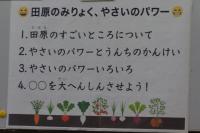 田原のみりょく、やさいのパワー
1.田原のすごいところについて
2.やさいのパワーとうんちのかんけい
3.やさいのパワーいろいろ
4.○○を大へんしんさせよう!